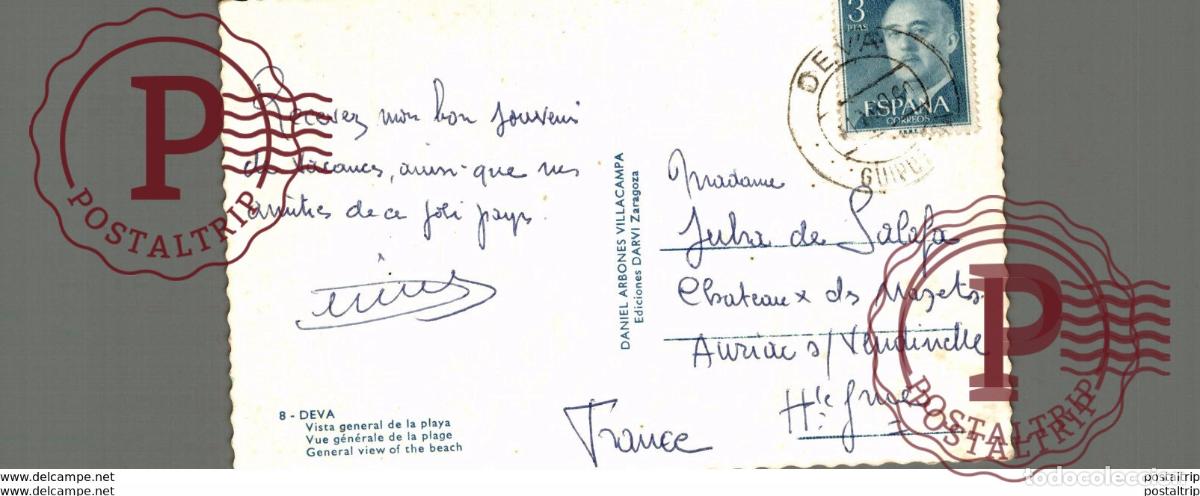 Recevez mon bon souvenir
de vacances, ainsi que mes
amitiés de ce joli pays.
8 - DEVA
Vista general de la playa
Vue générale de la plage
General view of the beach
DANIEL ARBONES VILLACAMPA
Ediciones DARVI Zaragoza
3
PTAS
ESPAÑA
CORREOS
DEVA
GUIPUZ
Madame
Julia de Lalafa
Chateaux des Mazets
Auriac s/ Vendinelle
Hte
France
P
POSTALTRIP
P
POSTALTRIP
POSTALTRIP
todocoleccion
www.delcampe.net
postaltrip
www.delcampe.net
postaltrip